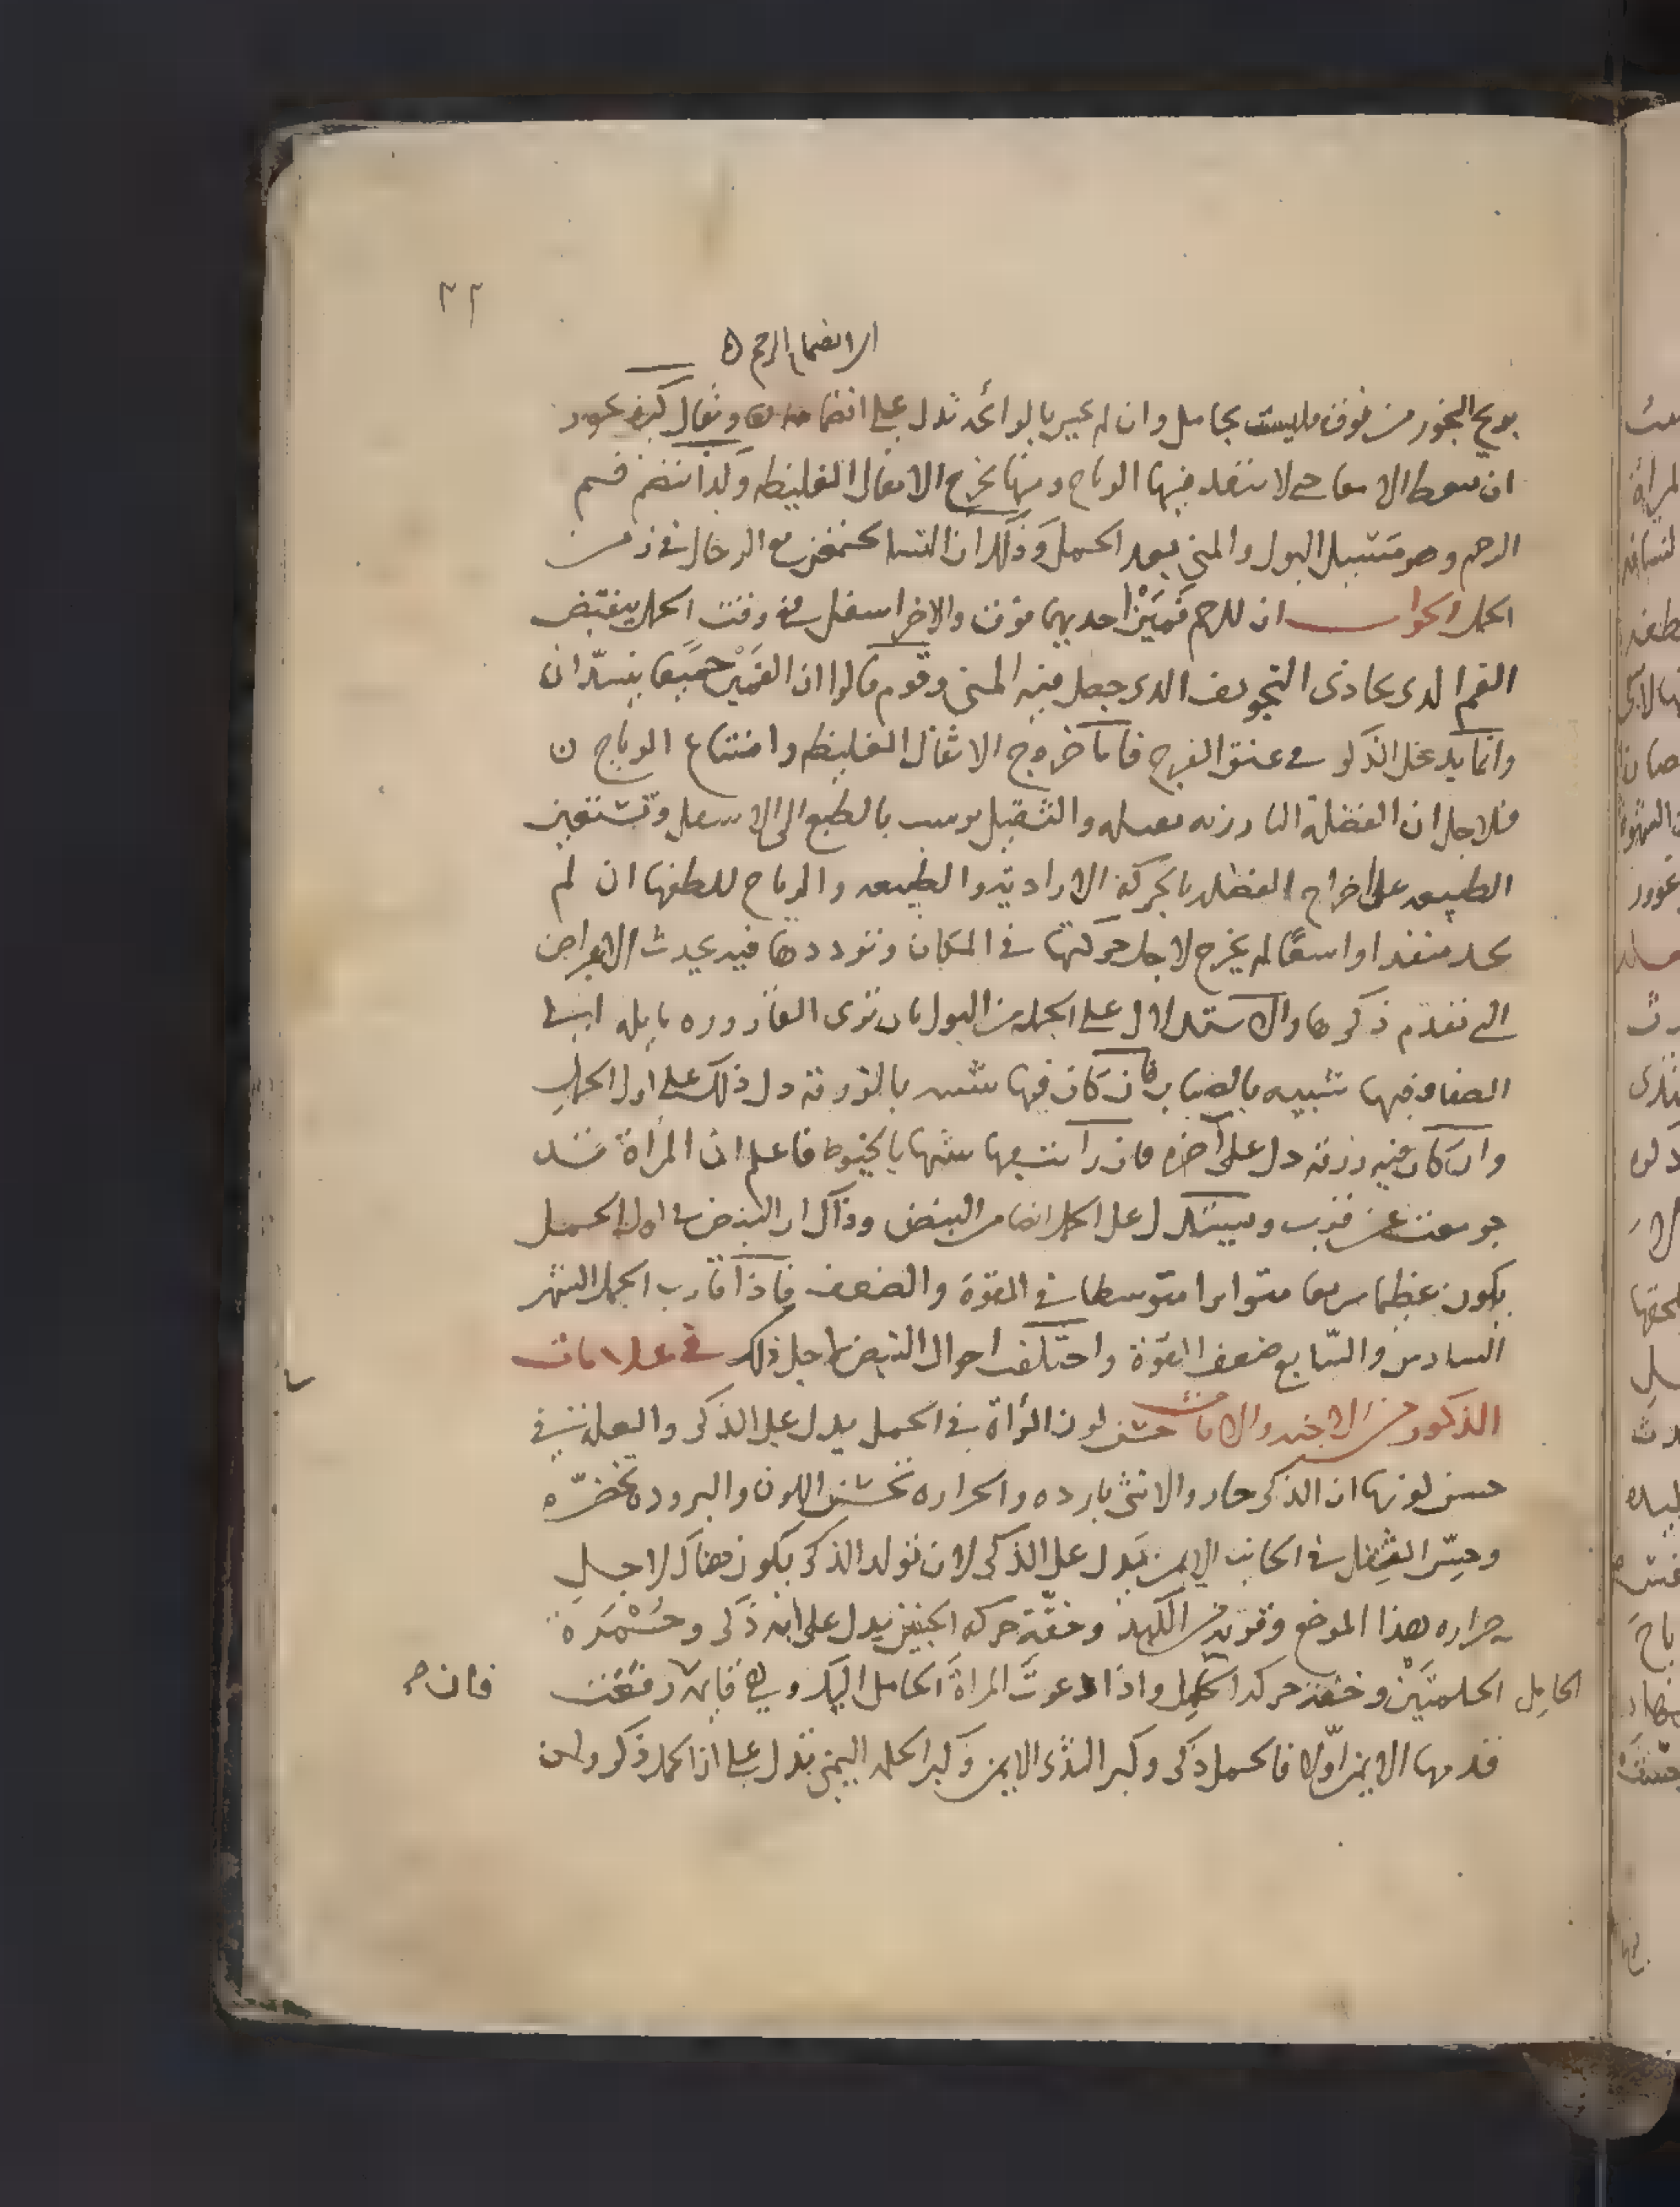 ٢٢
الانضمام الرحم
بريح البخور من فوق فليست بحامل وان لم تخبر بالرائحة تدل على انضمامه ويقال كيف يجوز
ان تضغط الامعا حتى لا تنفد فيها الرياح ومنها تخرج الاثفال الغليظه وكذا ينضم فم
الرحم وهو مستبيل البول والمنى بعد الحمل وذلك ان النسا يجتمعن مع الرجال في زمن
الحمل الجواب ان للرحم فمين احديهما فوق والاخر اسفل في وقت الحمل ينقبض
الفم الذي يحاذى التجويف الذي حصل فيه المنى وقوم قالوا ان الفمين جميعا ينسدان
وانما يدخل الذكر في عنق الفرج فاما خروج الاثفال الغليظه وامتناع الرياح ن
فلاجل ان الفضلة البارزه ثقيله والثقيل يرسب بالطبع الى الاسفل وتستعين
الطبيعه على اخراج الفضله بالحركة الاراديه والطبيعه والرياح للطفها ان لم
تجد منفذا واسعا لم يخرج لاجل حركتها في المكان وترددها فيه يحدث الاعراض
التي تقدم ذكرها والاستدلال على الحمل من البول بان ترى القارورة مايله الى
الصفا وفيها شبيه بالضباب فان كان فيها شبيه بالزرقه دل ذلك على اول الحمل
وان كان فيه زرقه دل على آخره فان رايت فيها شبيها بالخيوط فاعلم ان المرأة قد
جومعت عن قرب ويستدل على الحمل ايضا من النبض وذاك ان النبض في اول الحمل
يكون عظيما سريعا متواترا متوسطا في القوة والضعف فاذا قارب الحمل الشهر
السادس والسابع ضعف القوة واختلف احوال النبض لاجل ذلك في علامات
الذكور من الاجنه والاناث حسن لون المرأة في الحمل يدل على الذكر والعله في
حسن لونها ان الذكر حار والانثى بارده والحراره تحسن اللون والبروده تخضره
وحس الثقل في الجانب الايمن يدل على الذكر لان تولد الذكر يكون هناك لاجل
حراره هذا الموضع وقربه من الكبد وخفة حركه الجنين يدل على انه ذكر وحمرة
الحلمتين وخفه حركه الحامل واذا دعوت المراة الحامل اليك وهي قايمه رفعت
الحامل
فان
قدمها الايمن اولا فالحمل ذكر وكبر الثدى الايمن وكبر الحلمه اليمنى تدل على ان الحمل ذكر ولبن